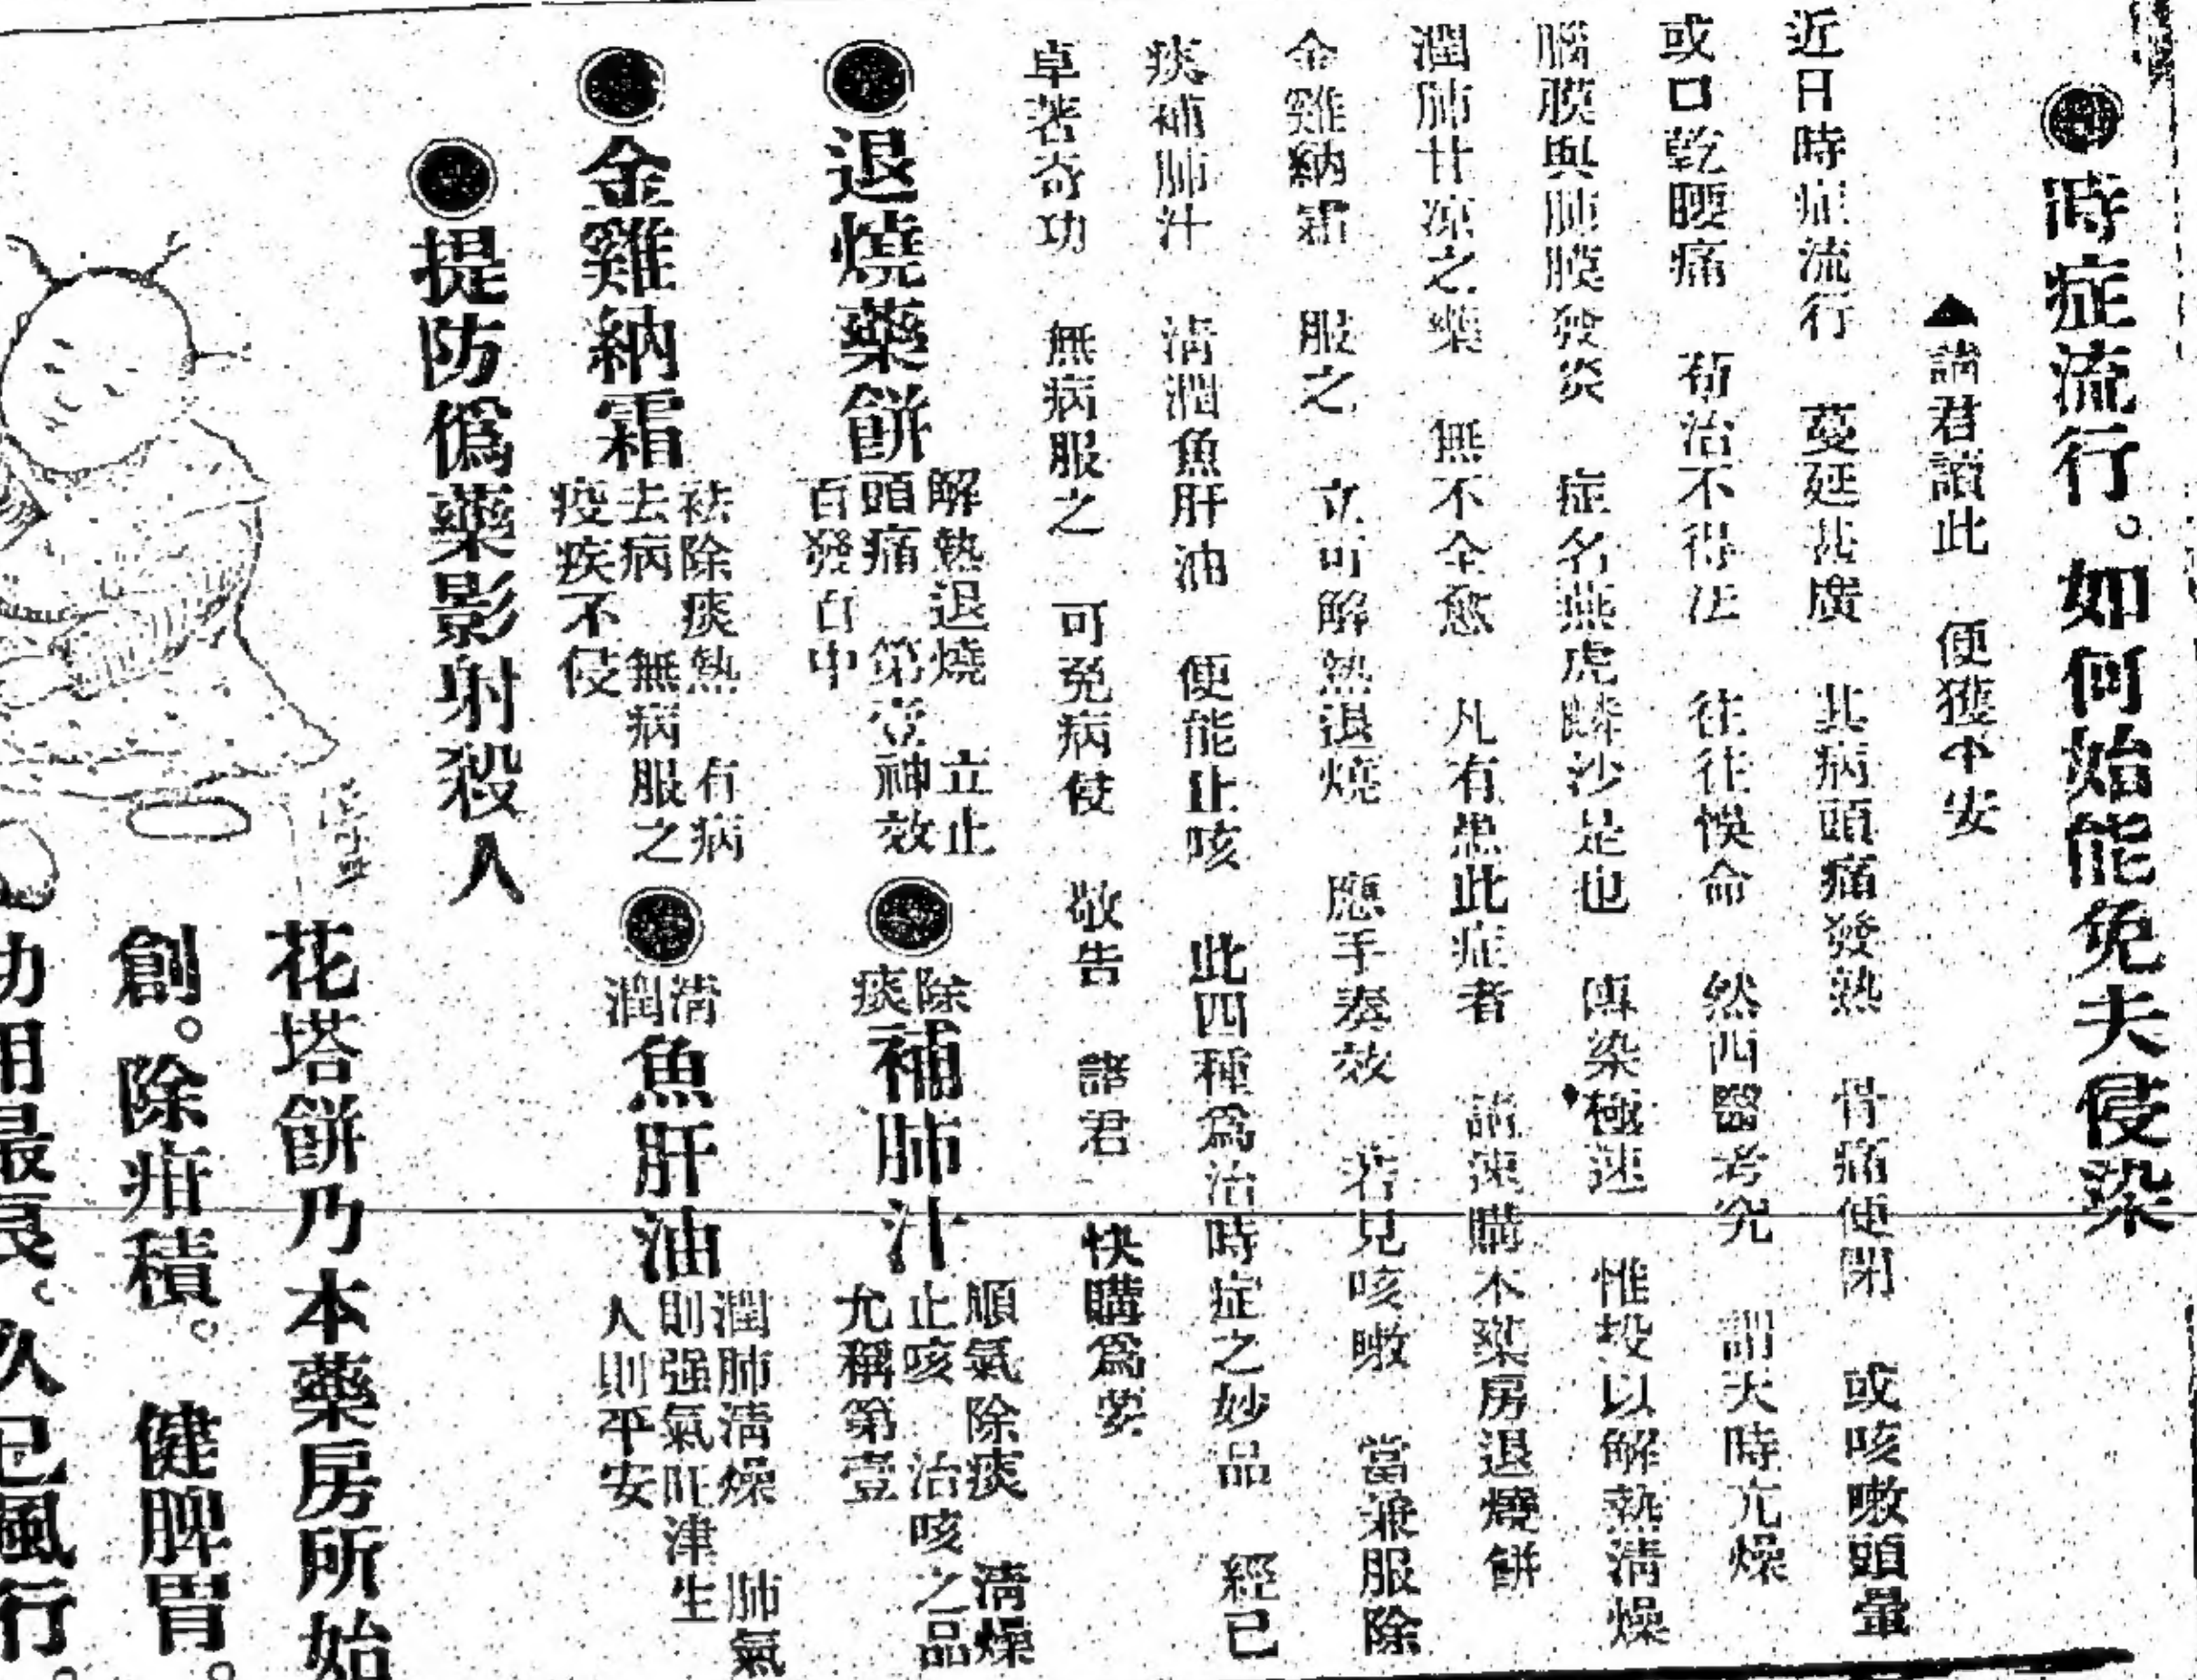 時症流行。如何始能免夫侵染
▲請君讀此 便獲平安
近日時症流行 蔓延甚廣 其病頭痛發熱 骨痛便閉 或咳嗽頭暈
或口乾腰痛 苟治不得法 往往悞命 然西醫考究 謂天時亢燥
腦膜與肺膜發炎 症名燕虎麟沙是也 傳染極速 惟投以解熱清燥
潤肺甘凉之藥 無不全愈 凡有患此症者 請速購本藥房退燒餅
金雞納霜 服之 立可解熱退燒 應手奏效 若見咳嗽 當兼服除
痰補肺汁 清潤魚肝油 便能止咳 此四種爲治時症之妙品 經已
卓著奇功 無病服之 可免病侵 敬告 諸君 快購爲要
退燒藥餅
解熱退燒 立止
頭痛 第壹神效
百發百中
除痰補肺汁
順氣除痰 清燥
止咳 治咳之品
允稱第壹
金雞納霜
袪除痰熱 有病
去病 無病服之
疫疾不侵
清潤魚肝油
潤肺清燥 肺氣
則强氣旺津生
人則平安
提防僞藥影射殺人
花塔餅乃本藥房所始
創。除疳積。健脾胃。
功用最良。久已風行。